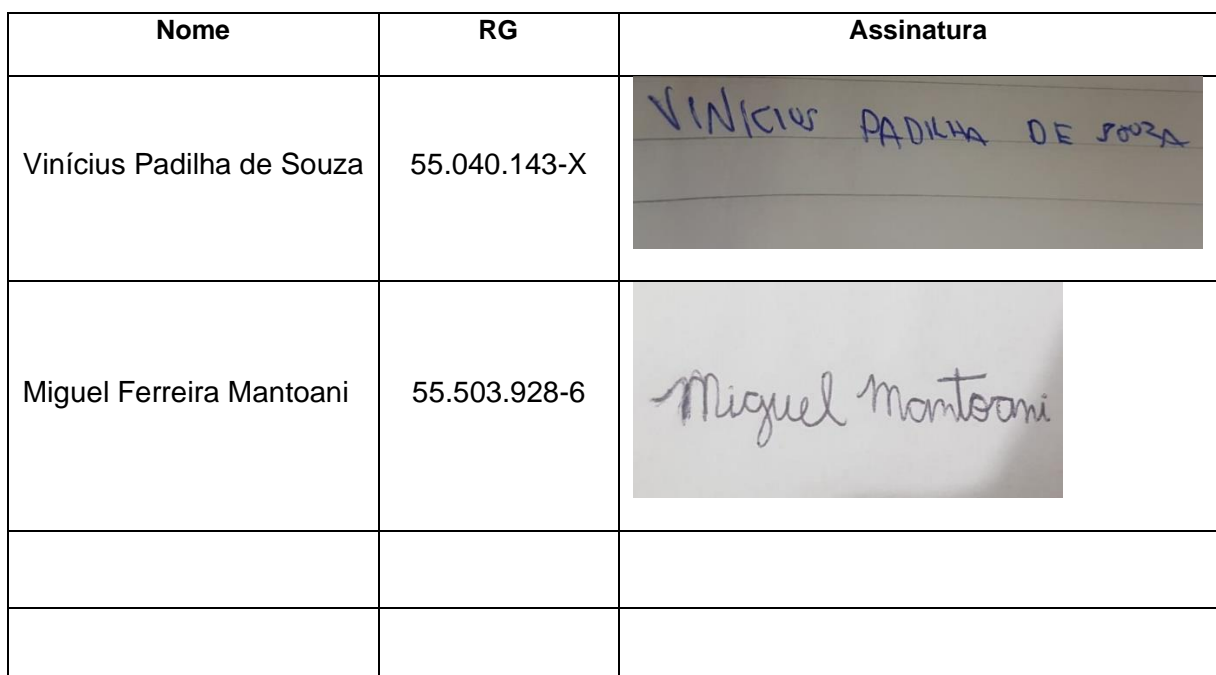 Nome RG Assinatura
Vinícius Padilha de Souza 55.040.143-X VINICIUS PADILHA DE SOUZA
Miguel Ferreira Mantoani 55.503.928-6 Miguel Mantoani